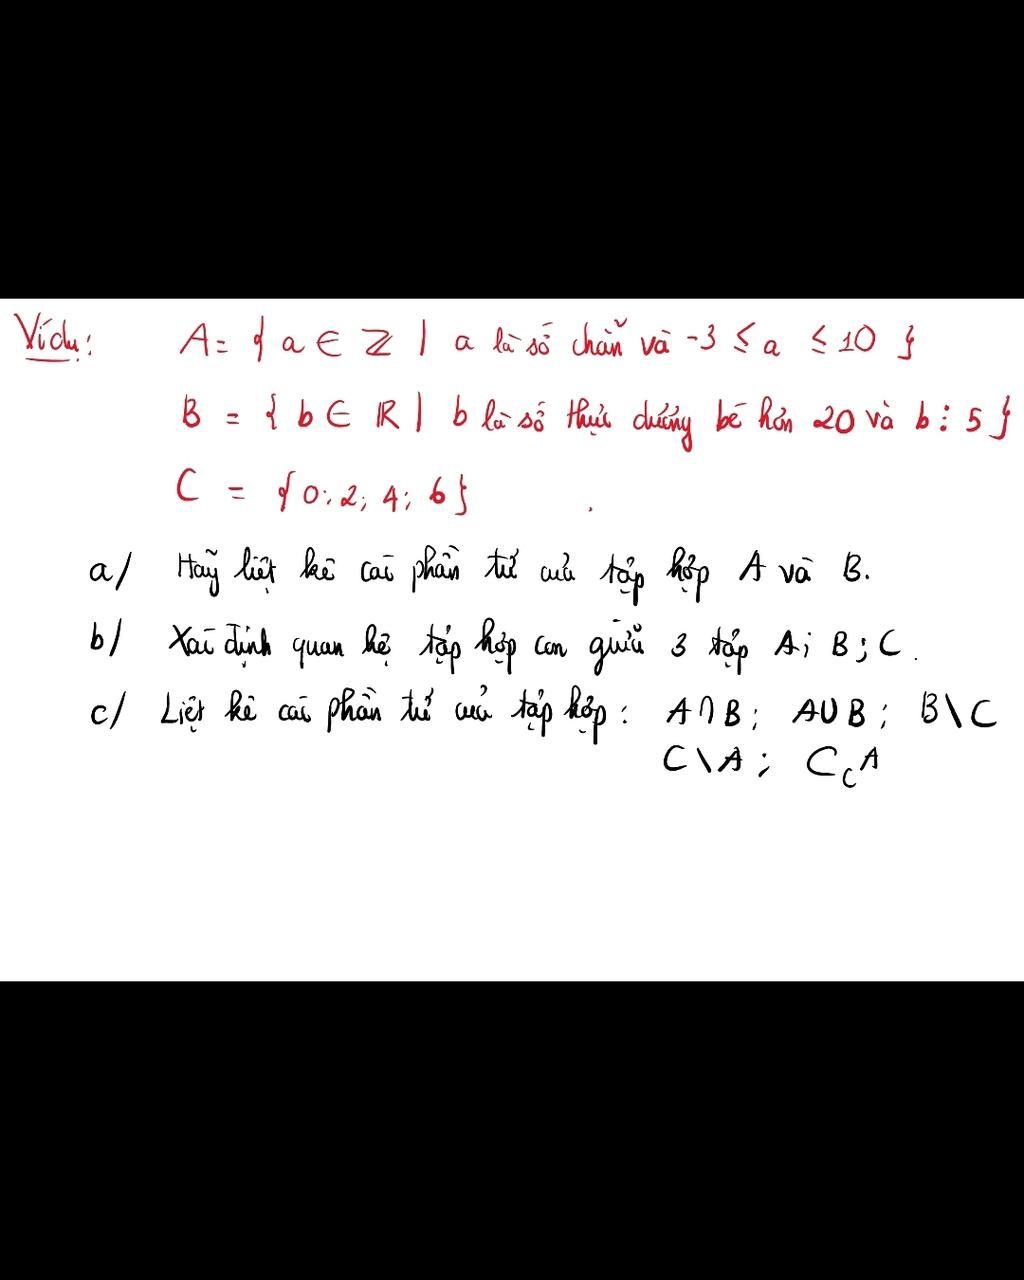 Ví dụ: A = { a ∈ ℤ | a là số chẵn và -3 ≤ a ≤ 10 }
B = { b ∈ ℝ | b là số thực dương bé hơn 20 và b ⋮ 5 }
C = { 0; 2; 4; 6 }
a/ Hãy liệt kê các phần tử của tập hợp A và B.
b/ Xác định quan hệ tập hợp con giữa 3 tập A; B; C.
c/ Liệt kê các phần tử của tập hợp: A ∩ B; A ∪ B; B \ C
C \ A; C_C A